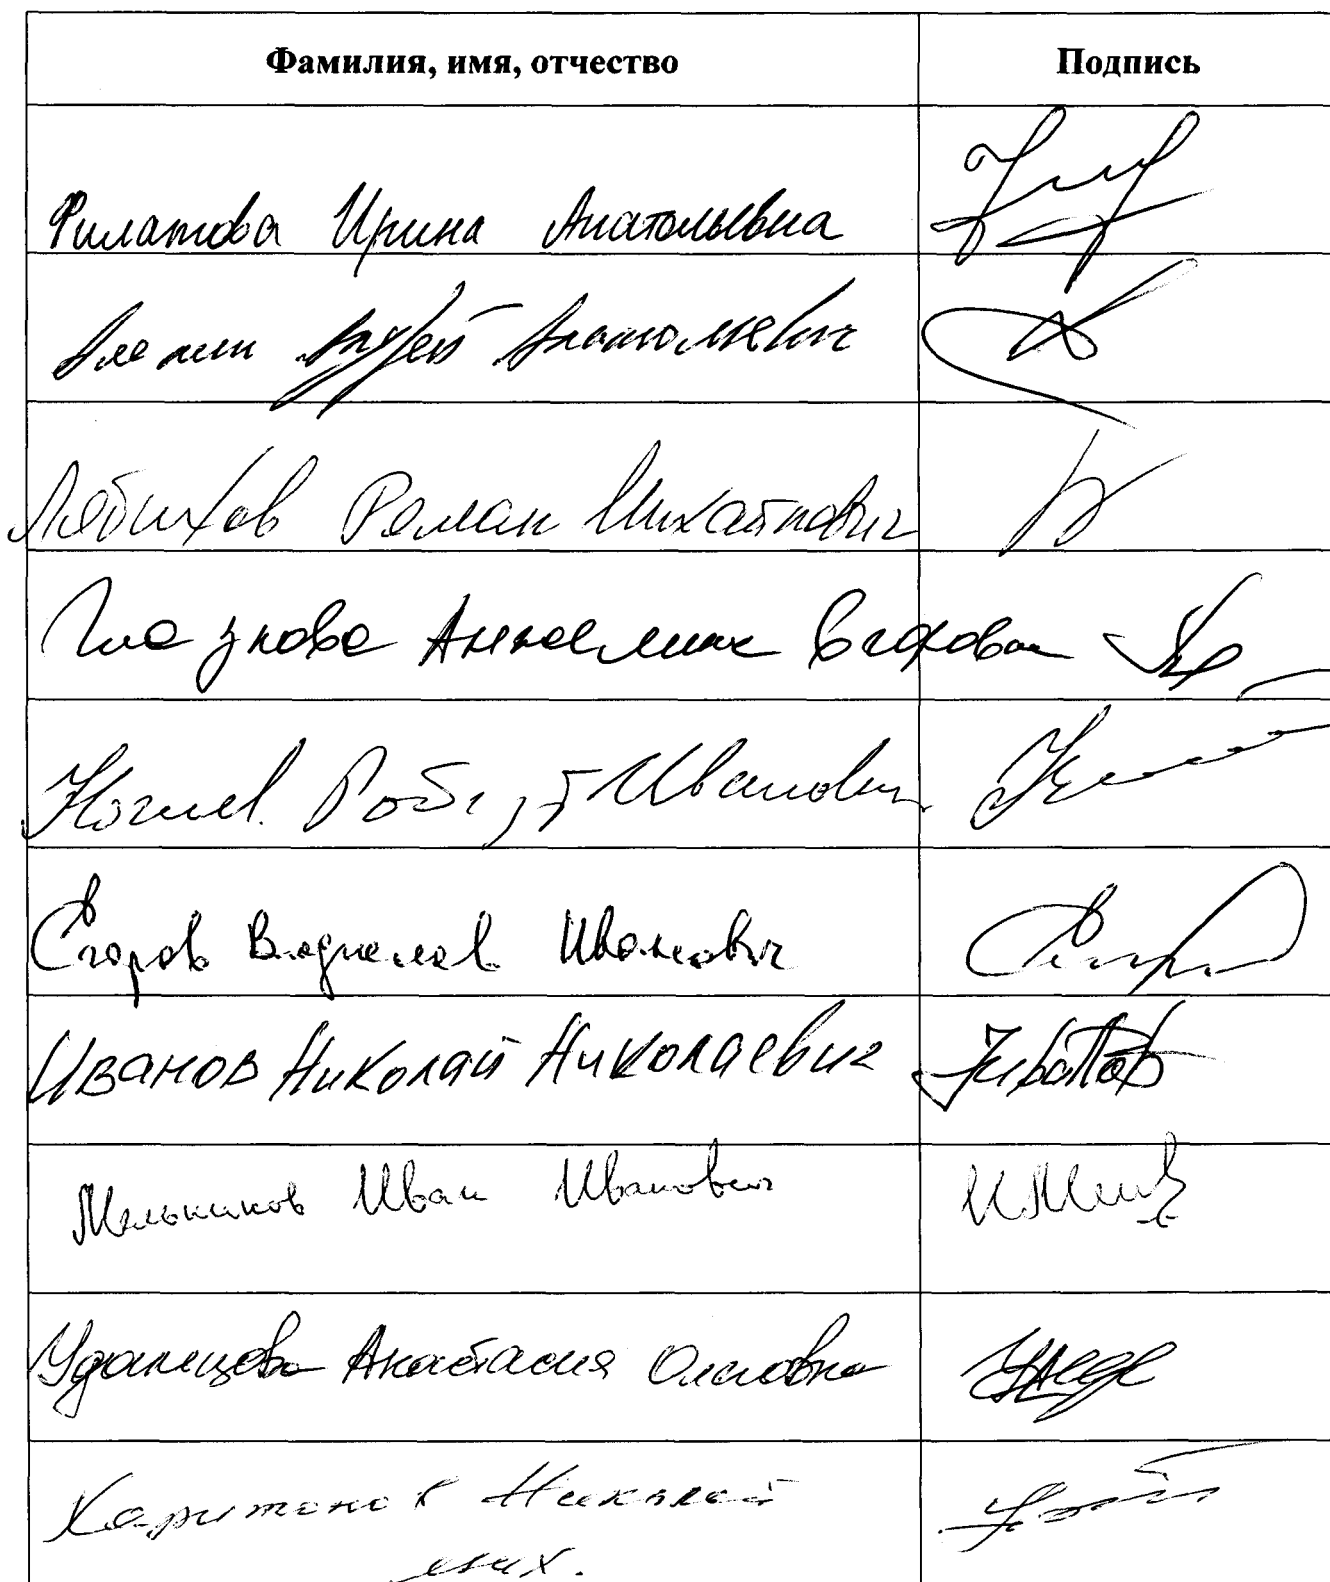 Фамилия, имя, отчество Подпись
Филатова Ирина Анатольевна
Алехин Андрей Анатольевич
Лябихов Роман Михайлович
Глазкова Анжелика Егоровна
Кочиев Роберт Иванович
Егоров Владислав Иванович
Иванов Николай Николаевич
Мельников Иван Иванович
Удальцова Анастасия Олеговна
Харитонов Николай
Мих.